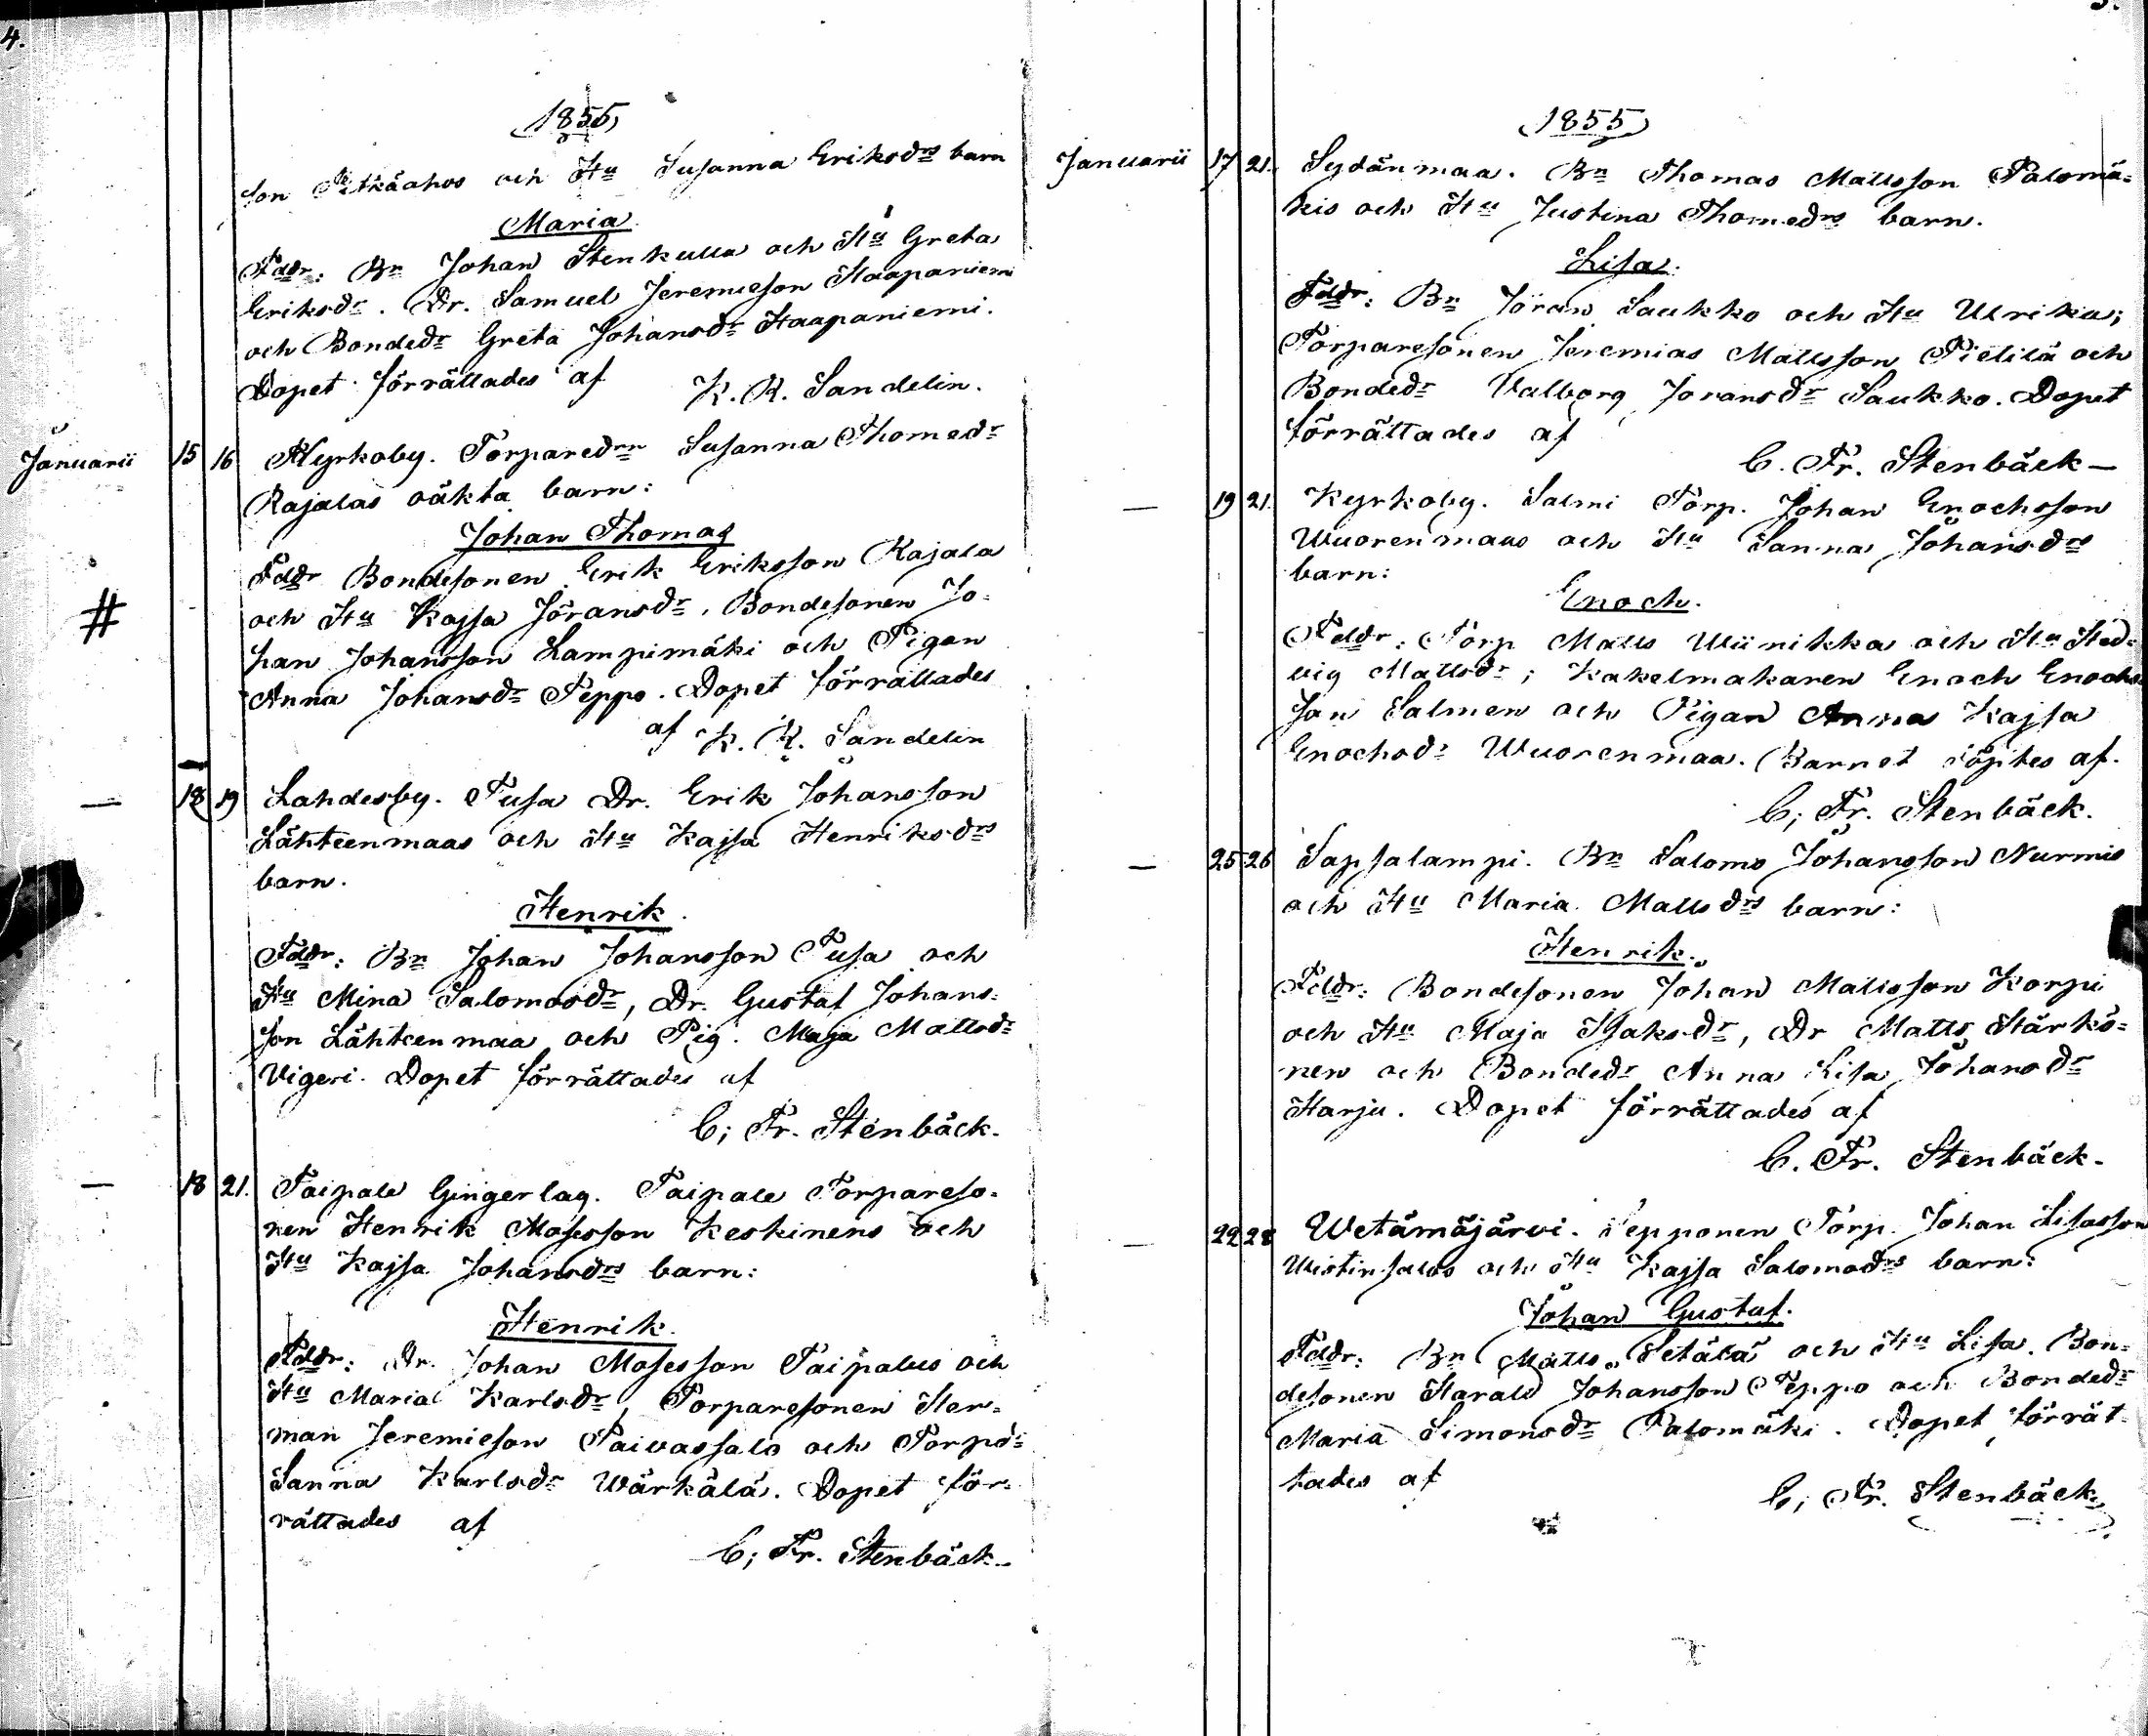 4.
1855
son Pitkäahos och Hu Susanna Eriksdrs barn
Maria
Fddr: Bn Johan Stenkulla och Hu Greta
Eriksdr. Dr. Samuel Jeremieson Haapaniemi
och Bondedr Greta Johansdr Haapaniemi.
Dopet förrättades af K. R. Sandelin.
Januarii 15 16 Kyrkoby. Torparedrn Susanna Thomedr
Rajalas oäkta barn:
Johan Thomas
Fddr Bondesonen Erik Eriksson Rajala
och Hu Kajsa Jöransdr, Bondesonen Jo-
han Johansson Lampimäki och Pigan
# Anna Johansdr Peppo. Dopet förrättades
af K. R. Sandelin
— 18 19 Lahdesby. Tusa Dr. Erik Johansson
Lähteenmaas och Hu Kajsa Henriksdrs
barn.
Henrik.
Fddr: Bn Johan Johansson Tusa och
Hu Mina Salomosdr, Dr. Gustaf Johans-
son Lähteenmaa och Pig. Maja Mattsdr
Vigeri. Dopet förrättades af
C; Fr. Stenbäck.
— 18 21. Taipale Gingerlag. Taipale Torpareso-
nen Henrik Mosesson Keskinens och
Hu Kajsa Johansdrs barn:
Henrik.
Fddr: Dr. Johan Mosesson Taipalus och
Hu Maria Karlsdr, Torparesonen Her-
man Jeremieson Paivassalo och Torpdr
Sanna Karlsdr Wärkälä. Dopet för-
rättades af
C; Fr. Stenbäck.
1855
Januarii 17 21. Sydänmaa. Bn Thomas Mattsson Palomä-
kis och Hu Justina Thomedrs barn.
Lisa.
Fddr: Bn Jöran Saukko och Hu Ulrika;
Torparesonen Jeremias Mattsson Pietilä och
Bondedr Valborg Jöransdr Saukko. Dopet
förrättades af
C. Fr. Stenbäck—
— 19 21. Kyrkoby. Salmi Torp. Johan Enochsson
Wuorenmaas och Hu Sanna Johansdrs
barn:
Enoch.
Fddr: Torp Matts Wiinikka och Hu Hed-
vig Mattsdr; Kakelmakaren Enoch Enochs
son Salmen och Pigan Anna Kajsa
Enochsdr Wuorenmaa. Barnet döptes af.
C; Fr. Stenbäck.
— 25 26 Sapsalampi. Bn Salomo Johansson Nurmis
och Hu Maria Mattsdrs barn:
Henrik.
Fddr: Bondesonen Johan Mattsson Korpi
och Hu Maja Isaksdr, Dr Matts Härkö-
nen och Bondedr Anna Lisa Johansdr
Harju. Dopet förrättades af
C. Fr. Stenbäck.
— 22 28 Wetämäjärvi. Sepponen Torp. Johan Lisasson
och Hu Kajsa Salomodrs barn:
Johan Gustaf.
Fddr: Bn Matts Setälä och Hu Lisa. Bon-
desonen Harald Johansson Peppo och Bondedr
Maria Simonsdr Palomäki. Dopet förrät-
tades af
C; Fr. Stenbäck.